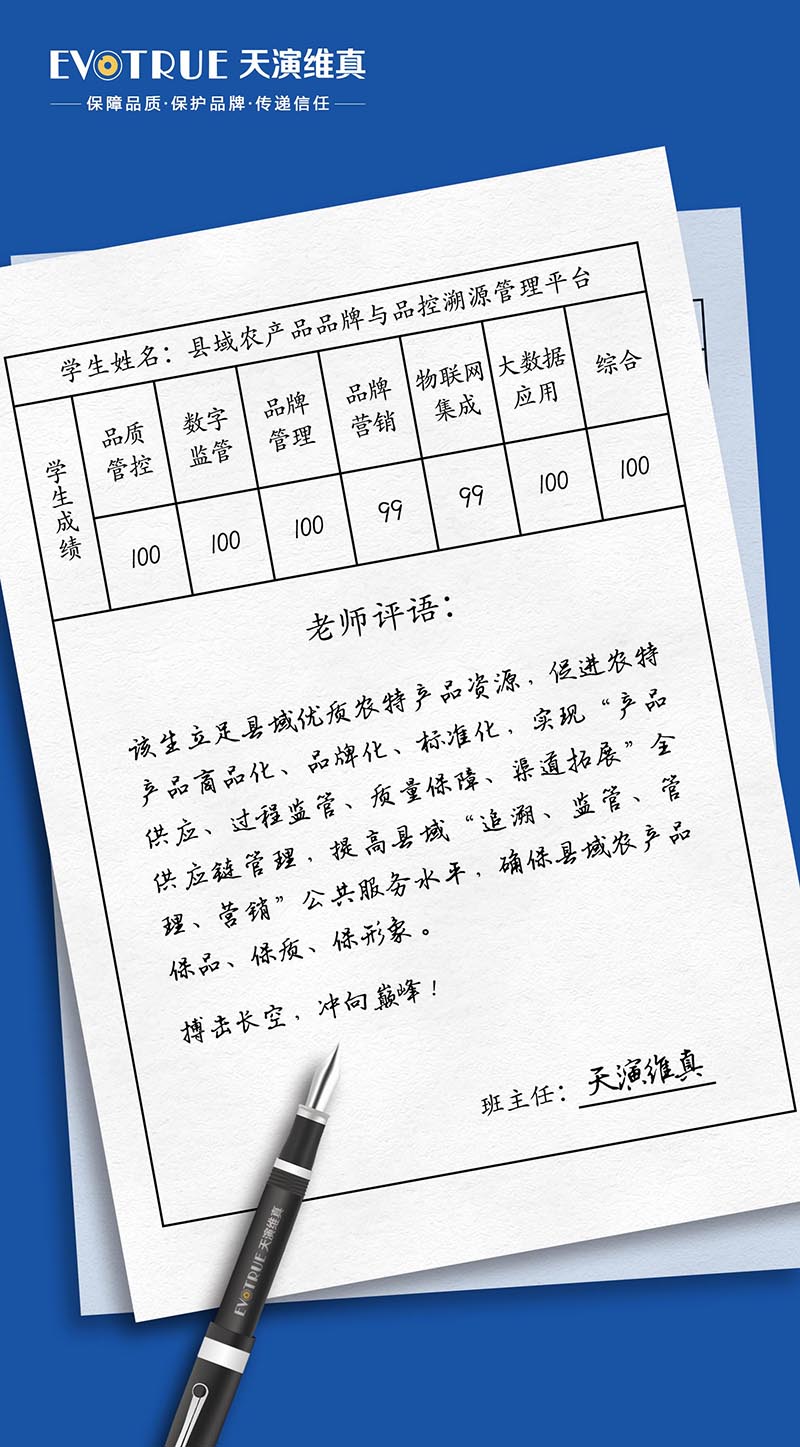 EVOTRUE 天演维真
保障品质·保护品牌·传递信任
学生姓名：县域农产品品牌与品控溯源管理平台
学生成绩
品质管控
数字监管
品牌管理
品牌营销
物联网集成
大数据应用
综合
100
100
100
99
99
100
100
老师评语：
该生立足县域优质农特产品资源，促进农特
产品商品化、品牌化、标准化，实现“产品
供应、过程监管、质量保障、渠道拓展”全
供应链管理，提高县域“追溯、监管、管
理、营销”公共服务水平，确保县域农产品
保品、保质、保形象。
搏击长空，冲向巅峰！
班主任：天演维真
EVOTRUE 天演维真